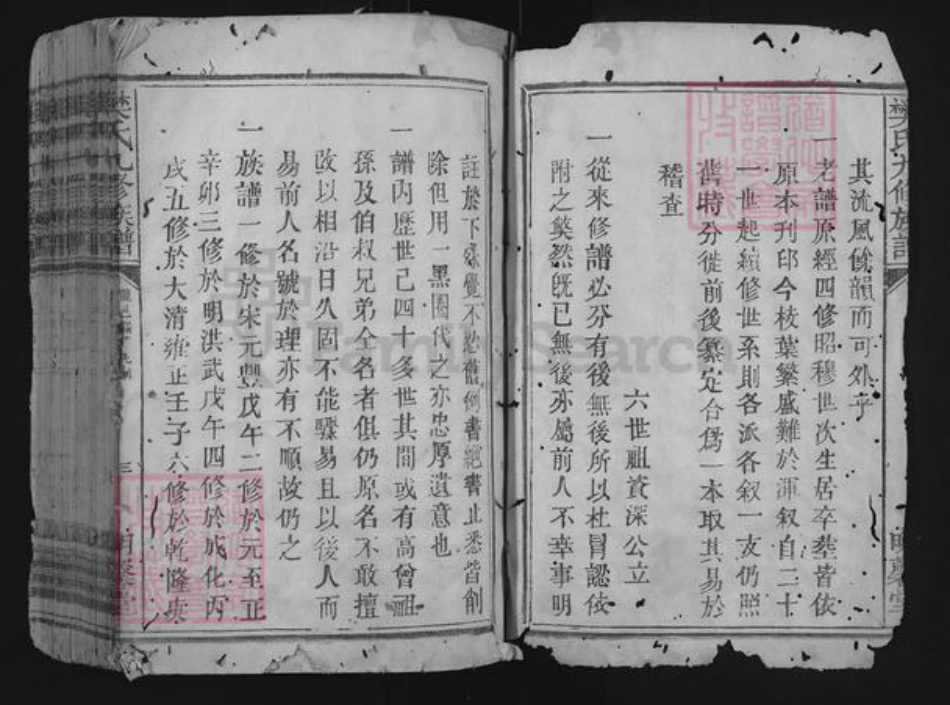 樊氏九修族譜
其流風餘韻而可外乎
一老譜原經四修昭穆世次生居卒塟皆依
原本刊印今枝葉繁盛難於渾叙自二十
一世起續修世系則各派各叙一支仍照
舊時分徙前後纂定合爲一本取其易於
稽查
六世祖資深公立
一從來修譜必分有後無後所以杜冒認依
附之獘然既已無後亦屬前人不幸事明
註於下殊覺不忍舊例書絕書止悉皆削
除但用一黑圈代之亦忠厚遺意也
一譜內歷世已四十多世其間或有高曾祖
孫及伯叔兄弟仝名者俱仍原名不敢擅
改以相沿日久固不能驟易且以後人而
易前人名號於理亦有不順故仍之
一族譜一修於宋元豐戊午二修於元至正
辛卯三修於明洪武戊午四修於成化丙
戌五修於大清雍正壬子六修於乾隆庚
樊氏九修族譜
三
FamilySearch